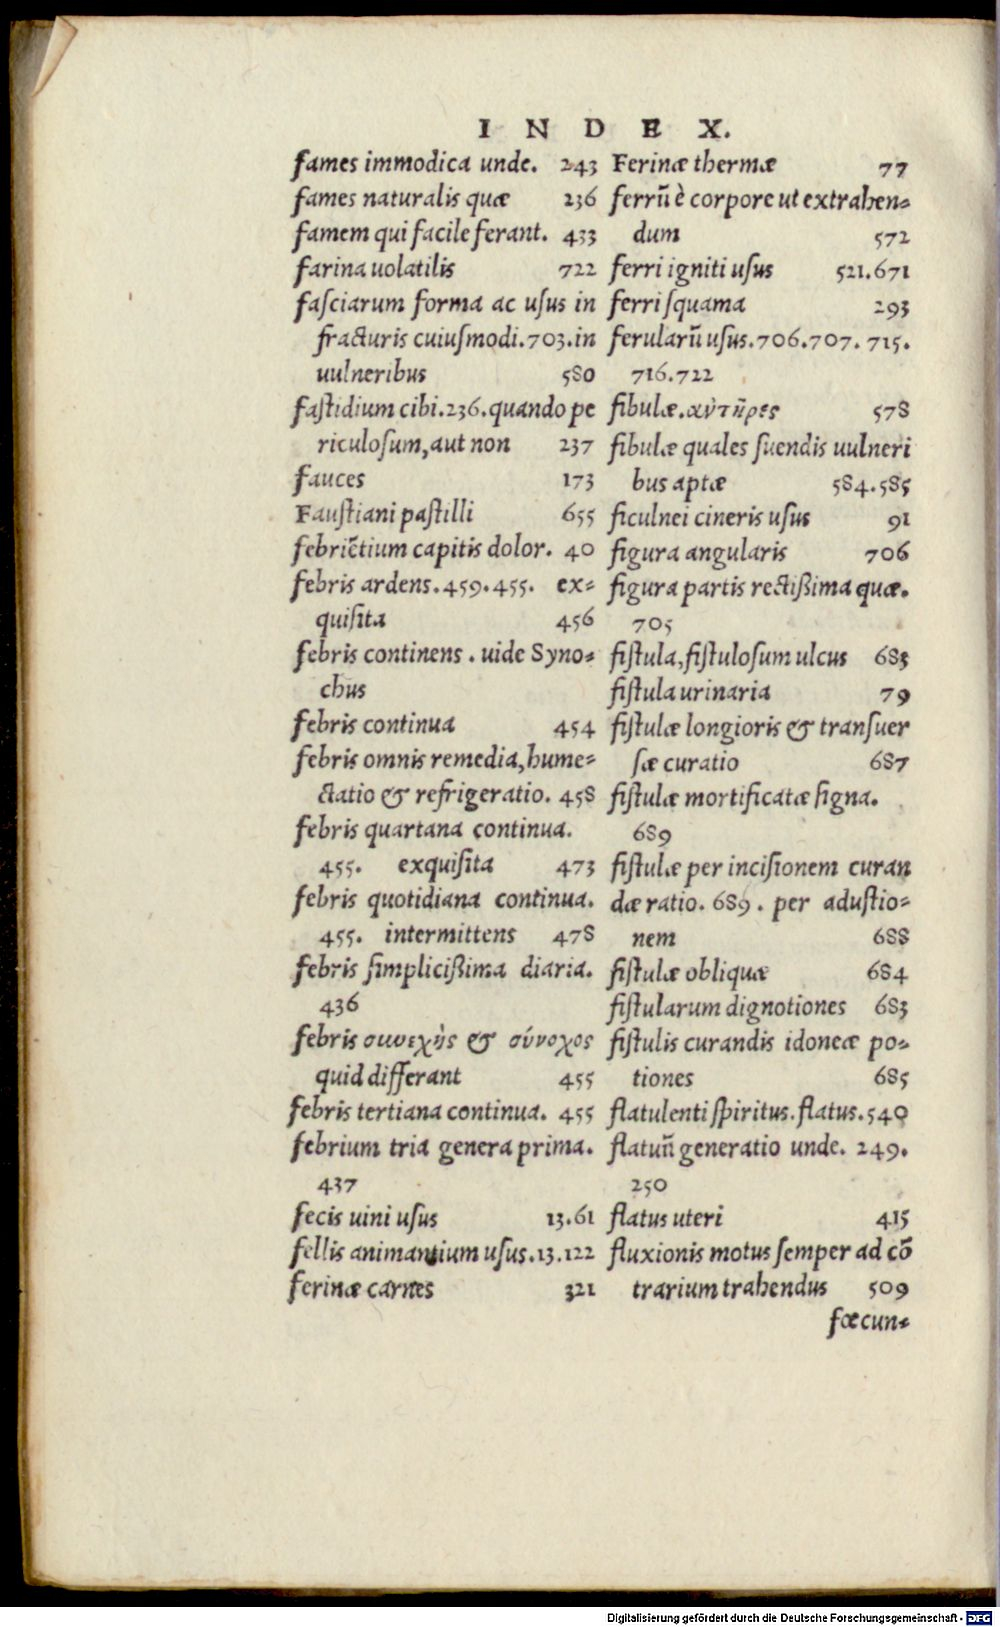 INDEX.
fames immodica unde. 243
fames naturalis quæ 236
famem qui facile ferant. 433
farina uolatilis 722
fasciarum forma ac usus in
fracturis cuiusmodi.703.in
uulneribus 580
fastidium cibi.236.quando pe
riculosum,aut non 237
fauces 173
Faustiani pastilli 655
febriẽtium capitis dolor. 40
febris ardens.459.455. ex-
quisita 456
febris continens . uide Syno-
chus
febris continua 454
febris omnis remedia,hume-
ctatio & refrigeratio. 458
febris quartana continua.
455. exquisita 473
febris quotidiana continua.
455. intermittens 478
febris simplicißima diaria.
436
febris συνεχὴς & σύνοχος
quid differant 455
febris tertiana continua. 455
febrium tria genera prima.
437
fecis uini usus 13.61
fellis animantium usus.13.122
ferinæ carnes 321
Ferinæ thermæ 77
ferrũ è corpore ut extrahen-
dum 572
ferri igniti usus 521.671
ferri squama 293
ferularũ usus.706.707. 715.
716.722
fibulæ.αὐτῆρες 578
fibulæ quales suendis uulneri
bus aptæ 584.585
ficulnei cineris usus 91
figura angularis 706
figura partis rectißima quæ.
705
fistula,fistulosum ulcus 683
fistula urinaria 79
fistulæ longioris & transuer
sæ curatio 687
fistulæ mortificatæ signa.
689
fistulæ per incisionem curan
dæ ratio. 689 . per adustio-
nem 688
fistulæ obliquæ 684
fistularum dignotiones 683
fistulis curandis idoneæ po-
tiones 685
flatulenti spiritus.flatus.540
flatuũ generatio unde. 249.
250
flatus uteri 415
fluxionis motus semper ad cõ
trarium trahendus 509
fœcun-
Digitalisierung gefördert durch die Deutsche Forschungsgemeinschaft - DFG